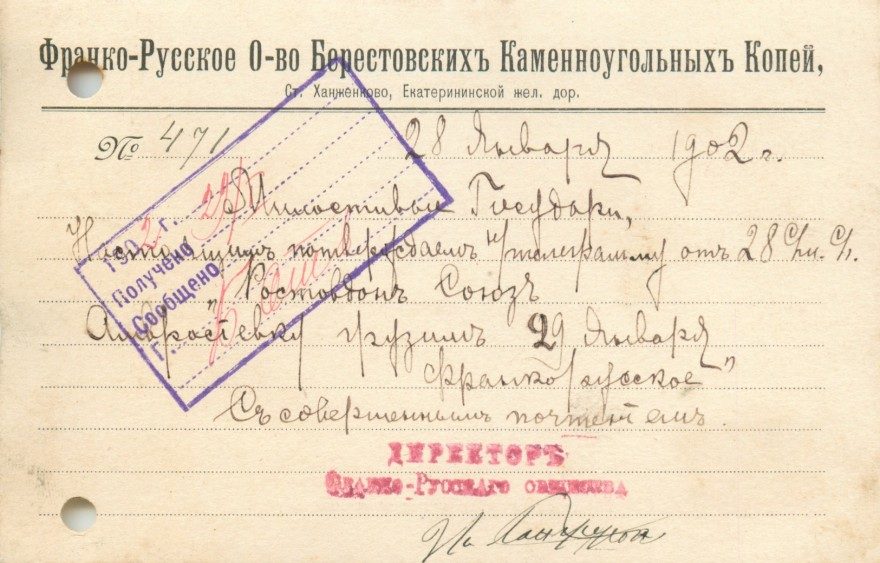 Франко-Русское О-во Берестовскихъ Каменноугольныхъ Копей,
Ст. Ханженково, Екатерининской жел. дор.
№ 471 28 Января 1902 г.
Милостивые Государи,
Настоящимъ потверждаемъ телеграмму отъ 28 с/м. с/г.
„Ростовдонъ Союзъ
Амвросіевку грузимъ 29 Января
Франкорусское"
Съ совершеннымъ почтеніемъ
1902 г.
Получено
Сообщено
Г.
ДИРЕКТОРЪ
Франко-Русскаго общества